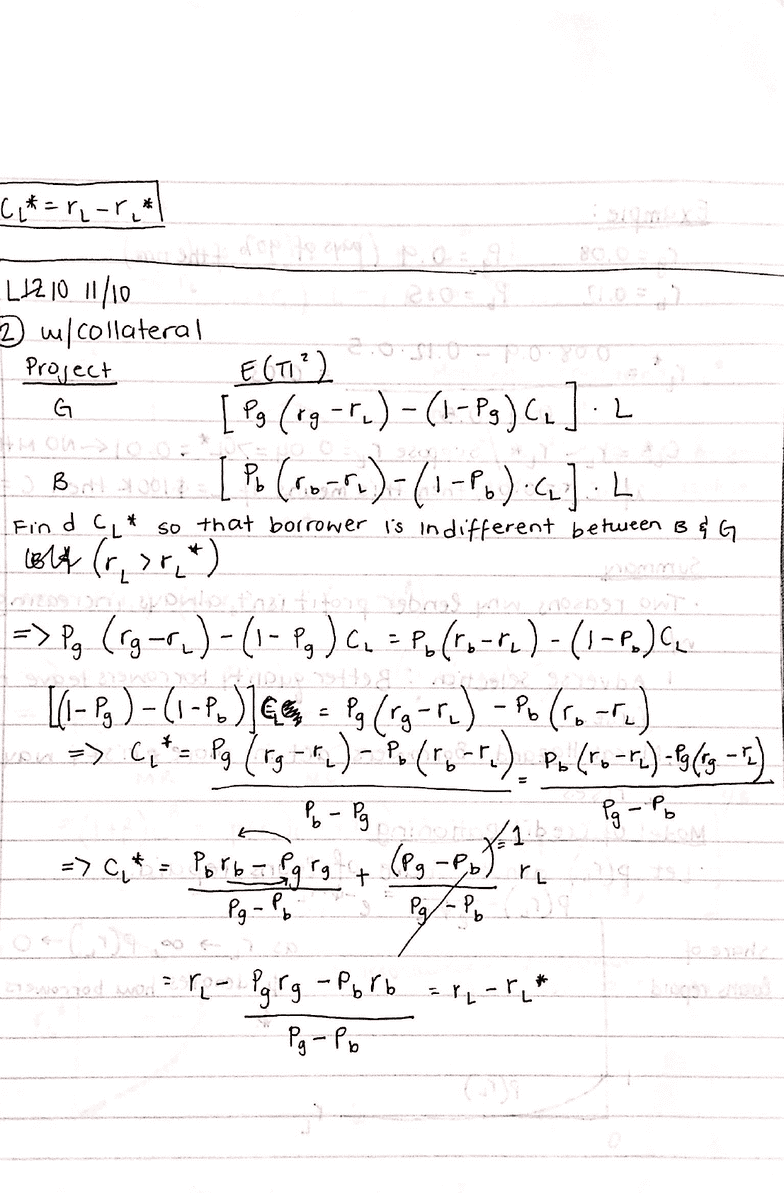 C_L* = r_L - r_L*
L1210 11/10
② w/collateral
Project E(π²)
G [P_g (r_g - r_L) - (1 - P_g) C_L] · L
B [P_b (r_b - r_L) - (1 - P_b) · C_L] · L
Find C_L* so that borrower is indifferent between B & G
(r_L > r_L*)
=> P_g (r_g - r_L) - (1 - P_g) C_L = P_b (r_b - r_L) - (1 - P_b) C_L
[(1 - P_g) - (1 - P_b)] C_L = P_g (r_g - r_L) - P_b (r_b - r_L)
=> C_L* = P_g (r_g - r_L) - P_b (r_b - r_L) / P_b - P_g = P_b (r_b - r_L) - P_g (r_g - r_L) / P_g - P_b
=> C_L* = P_b r_b - P_g r_g / P_g - P_b + (P_g - P_b) / P_g - P_b = 1 r_L
= r_L - P_g r_g - P_b r_b / P_g - P_b = r_L - r_L*